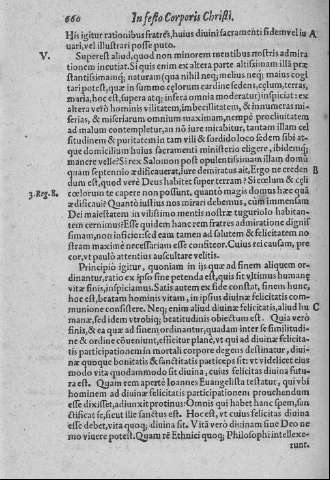 660 In festo Corporis Christi.
His igitur rationibus fratres, huius diuini sacramenti fidem vel iu A
uari, vel illustrari posse puto.
V. Superest aliud, quod non minorem mentibus nostris admira
tionem incutiat. Si quis enim ex altera parte altissimam illã præ
stantissimamq; naturam (qua nihil neq; melius neq; maius cogi
tari potest, quæ in summo cęlorum cardine sedens, cęlum, terras,
maria, hoc est, supera atq; infera omnia moderatur) inspiciat: ex
altera verò hominis vilitatem, imbecillitatem, & innumeras mi-
serias, & miseriarum omnium maximam, nempè procliuitatem
ad malum contempletur, an nõ iure mirabitur, tantam illam cel
situdinem & puritatem in tam vili & sordido loco sedem sibi at-
que domicilium huius sacramenti ministerio eligere, ibidemq;
manere velle? Si rex Salomon post opulentissimam illam domũ
quam septennio ædificauerat, iure demiratus ait, Ergo ne creden B
dum est, quod verè Deus habitet super terram? Si cœlum & cęli
3. Reg. 8. cœlorum te capere non possunt, quantò magis domus hæc quã
ædificaui? Quantò iustius nos mirari debemus, cùm immensam
Dei maiestatem in vilissimo mentis nostræ tuguriolo habitan-
tem cernimus? Esse quidem hanc rem fratres admiratione dignis
simam, non inficior: sed eam tamen ad salutem & felicitatem no
stram maximè necessariam esse confiteor. Cuius rei causam, pre
cor, vt paulò attentius auscultare velitis.
Principiò igitur, quoniam in ijs quæ ad finem aliquem or-
dinantur, ratio ex ipso fine petenda est, quis sit vltimus humanę
vitæ finis, inspiciamus. Satis autem ex fide constat, finem hunc,
hoc est, beatam hominis vitam, in ipsius diuinæ felicitatis com-
munione consistere. Neq; enim aliud diuinæ felicitatis, aliud hu C
manæ, sed idem vtrobiq; beatitudinis obiectum est. Quia verò
finis, & ea quæ ad finem ordinantur, quadam inter se similitudi-
ne & ordine cõueniunt, efficitur planè, vt qui ad diuinæ felicita-
tis participationem in mortali corpore degens destinatur, diui-
næ quoque bonitatis & sanctitatis particeps sit: vt videlicet eius
modo vita quodammodo sit diuina, cuius felicitas diuina futu-
ra est. Quam rem apertè Ioannes Euangelista testatur, qui vbi
hominem ad diuinæ felicitatis participationem prouehendum
esse dixisset, adiunxit protinus: Omnis qui habet hanc spem, san
ctificat se, sicut ille sanctus est. Hoc est, vt cuius felicitas diuina
esse debet, vita quoq; diuina sit. Vita verò diuina sine Deo ne-
mo viuere potest. Quam rẽ Ethnici quoq; Philosophi intellexe-
runt.